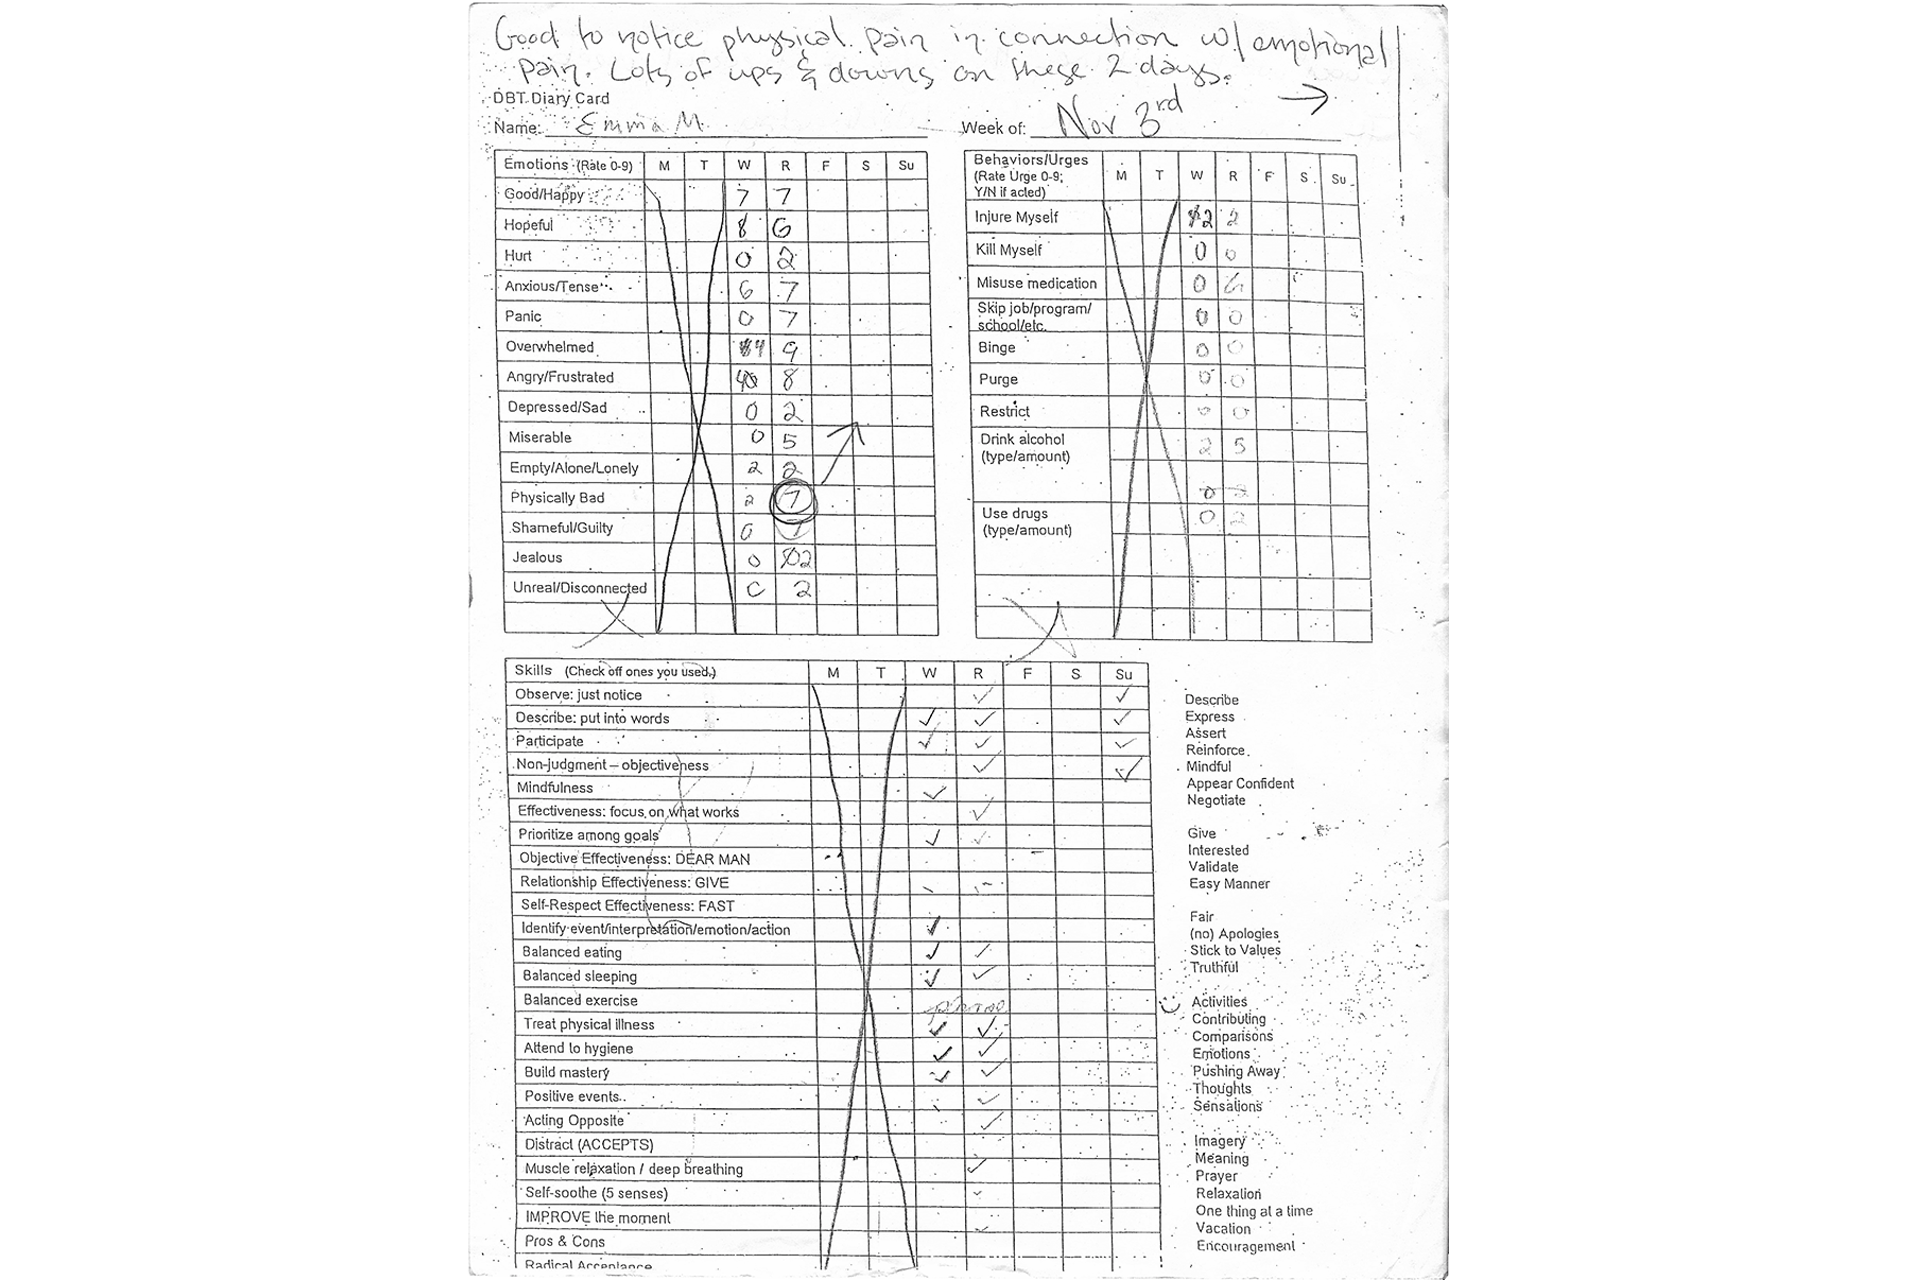 Good to notice physical pain in connection w/ emotional
pain. Lots of ups & downs on these 2 days.
→
DBT Diary Card
Name: Emma M.
Week of: Nov 3rd
Emotions (Rate 0-9) M T W R F S Su
Good/Happy 7 7
Hopeful 8 6
Hurt 0 2
Anxious/Tense 6 7
Panic 0 7
Overwhelmed 4 9
Angry/Frustrated 8
Depressed/Sad 0 2
Miserable 0 5
Empty/Alone/Lonely 2 2
Physically Bad 2 7
Shameful/Guilty
Jealous 0 2
Unreal/Disconnected 0 2
Behaviors/Urges
(Rate Urge 0-9;
Y/N if acted)
M T W R F S Su
Injure Myself 2 2
Kill Myself 0 0
Misuse medication 0
Skip job/program/
school/etc. 0 0
Binge 0 0
Purge 0 0
Restrict 0 0
Drink alcohol 2 5
(type/amount)
0
Use drugs 0 2
(type/amount)
Skills (Check off ones you used.) M T W R F S Su
Observe: just notice ✓ ✓
Describe: put into words ✓ ✓ ✓
Participate ✓ ✓ ✓
Non-judgment – objectiveness ✓ ✓
Mindfulness ✓
Effectiveness: focus on what works ✓
Prioritize among goals ✓ ✓
Objective Effectiveness: DEAR MAN
Relationship Effectiveness: GIVE
Self-Respect Effectiveness: FAST
Identify event/interpretation/emotion/action ✓
Balanced eating ✓ ✓
Balanced sleeping ✓ ✓
Balanced exercise
Treat physical illness ✓ ✓
Attend to hygiene ✓ ✓
Build mastery ✓ ✓
Positive events ✓
Acting Opposite ✓
Distract (ACCEPTS)
Muscle relaxation / deep breathing ✓
Self-soothe (5 senses)
IMPROVE the moment
Pros & Cons
Radical Acceptance
Describe
Express
Assert
Reinforce
Mindful
Appear Confident
Negotiate
Give
Interested
Validate
Easy Manner
Fair
(no) Apologies
Stick to Values
Truthful
Activities
Contributing
Comparisons
Emotions
Pushing Away
Thoughts
Sensations
Imagery
Meaning
Prayer
Relaxation
One thing at a time
Vacation
Encouragement